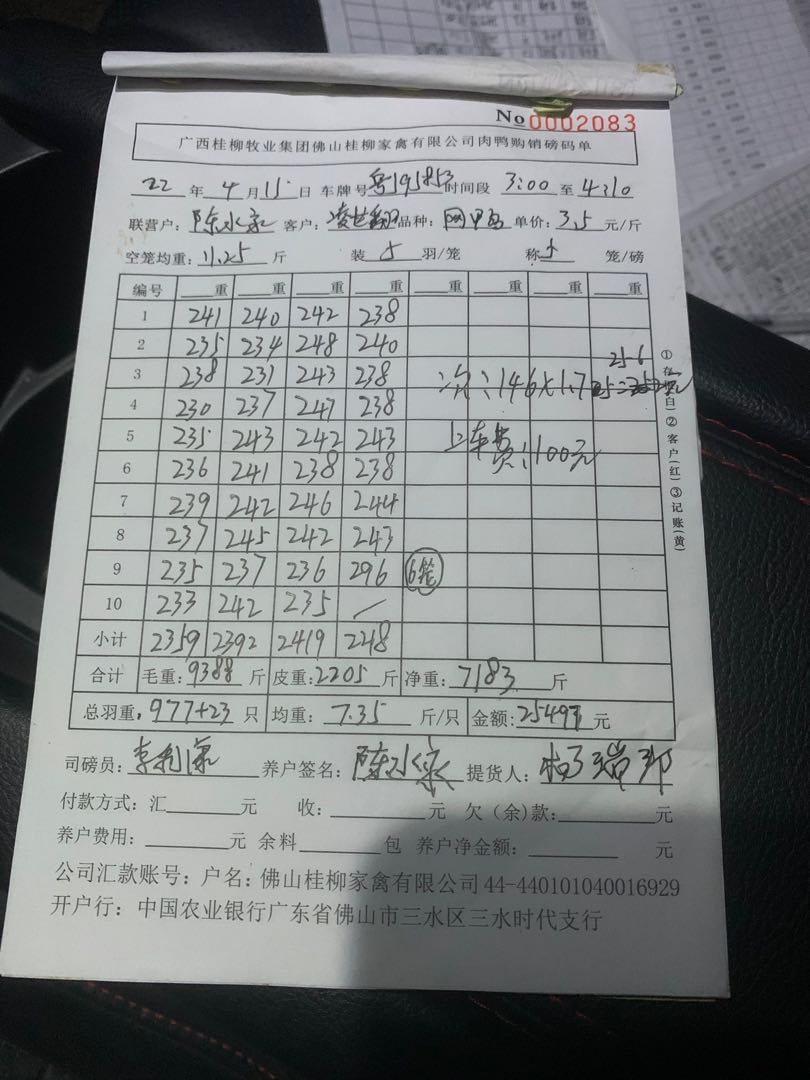 No 0002083
广西桂柳牧业集团佛山桂柳家禽有限公司肉鸭购销磅码单
22 年 4 月 15 日 车牌号 粤J95853 时间段 3:00 至 4:10
联营户: 陈水 客户: 凌世 品种: 网甲 单价: 3.5 元/斤
空笼均重: 11.25 斤 装 5 羽/笼 称 5 笼/磅
编号 重 重 重 重 重 重 重
1 241 240 242 238
2 235 234 248 240
3 238 231 243 238 次:146×1.7 25-6
4 230 237 247 238
5 235 243 242 243 上车费:100元
6 236 241 238 238
7 239 242 246 244
8 237 245 242 243
9 235 237 236 296 6笼
10 233 242 235 /
小计 2359 2392 2419 2218
合计 毛重: 9388 斤 皮重: 2205 斤 净重: 7183 斤
总羽重: 977+23 只 均重: 7.35 斤/只 金额: 25497 元
司磅员: 养户签名: 陈水 提货人: 杨瑞邦
付款方式: 汇 元 收: 元 欠(余)款: 元
养户费用: 元 余料 包 养户净金额: 元
公司汇款账号: 户名: 佛山桂柳家禽有限公司 44-440101040016929
开户行: 中国农业银行广东省佛山市三水区三水时代支行
白)② 客户(红)③ 记账(黄)